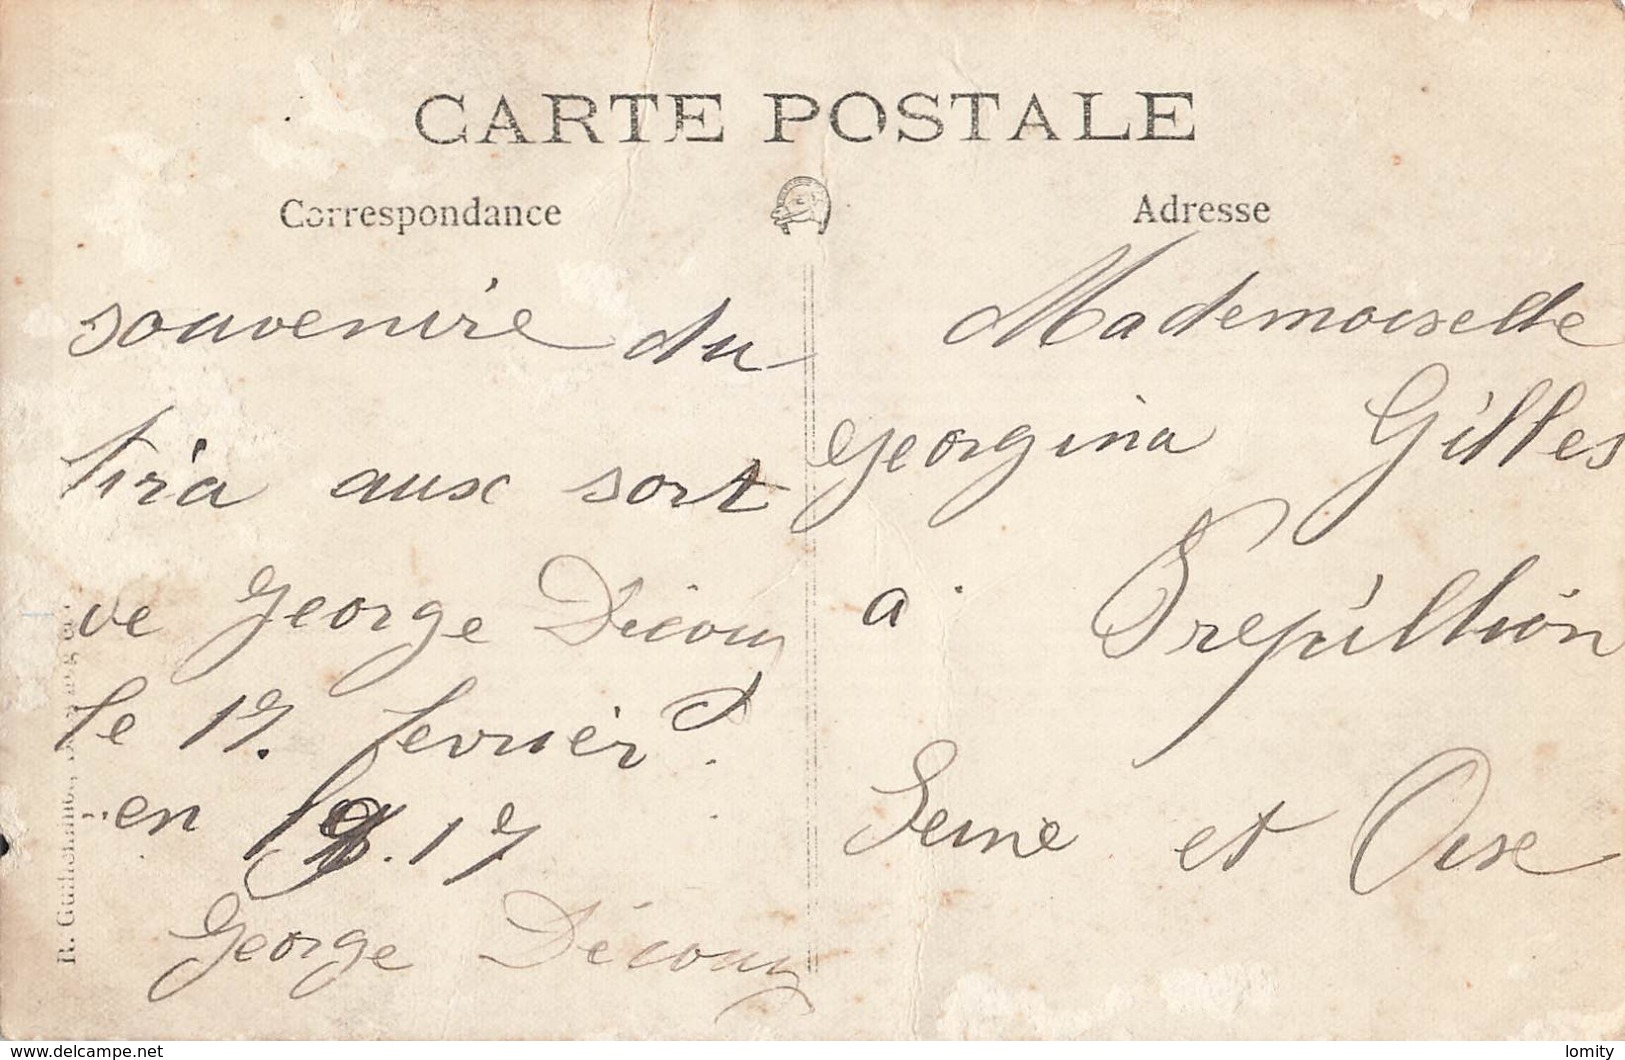 CARTE POSTALE
Correspondance
Adresse
souvenire du
tira aux sort
de George Décour
le 17. fevrier
en 19.17
George Décour
Mademoiselle
georgina Gilles
a Frepillion
Seine et Oise
R. Guilleminot,
www.delcampe.net
lomity